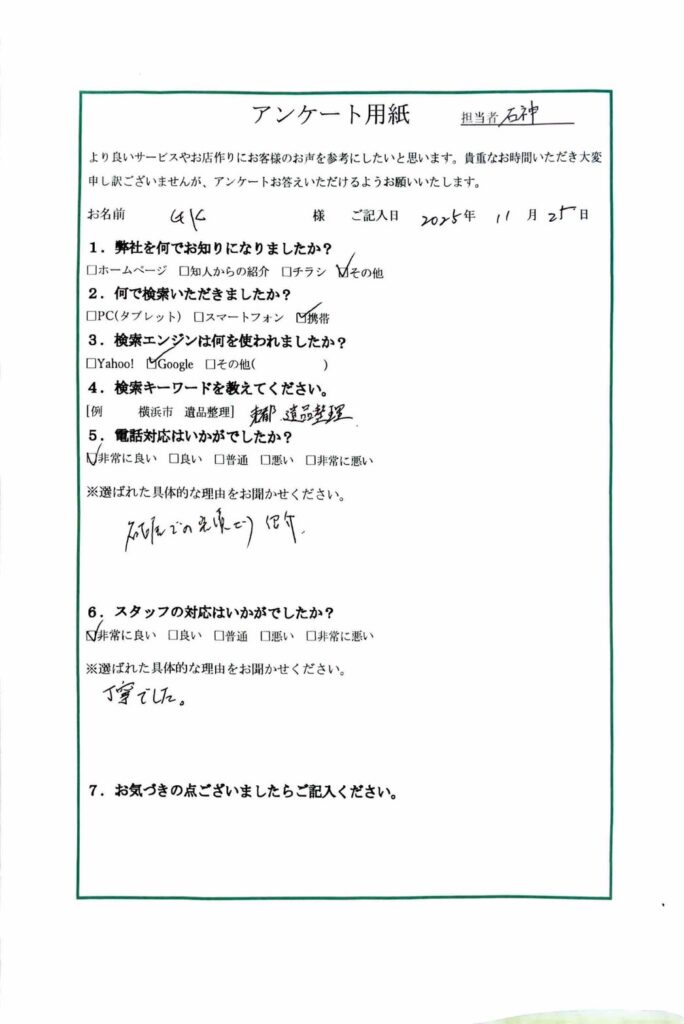 アンケート用紙 担当者 石神
より良いサービスやお店作りにお客様のお声を参考にしたいと思います。貴重なお時間いただき大変
申し訳ございませんが、アンケートお答えいただけるようお願いいたします。
お名前 様 ご記入日 2025年 11月 25日
1．弊社を何でお知りになりましたか？
□ホームページ □知人からの紹介 □チラシ ☑その他
2．何で検索いただきましたか？
□PC(タブレット) □スマートフォン ☑携帯
3．検索エンジンは何を使われましたか？
□Yahoo! ☑Google □その他( )
4．検索キーワードを教えてください。
[例 横浜市 遺品整理] 遺品整理
5．電話対応はいかがでしたか？
☑非常に良い □良い □普通 □悪い □非常に悪い
※選ばれた具体的な理由をお聞かせください。
6．スタッフの対応はいかがでしたか？
☑非常に良い □良い □普通 □悪い □非常に悪い
※選ばれた具体的な理由をお聞かせください。
丁寧でした。
7．お気づきの点ございましたらご記入ください。